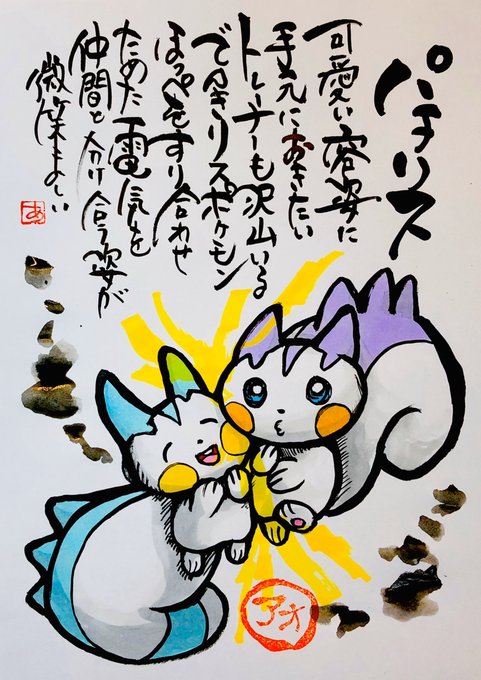 パチリス
可愛い容姿に
手元におきたい
トレーナーも沢山いる
でんきリスポケモン
ほっぺをすり合わせ
ためた電気を
仲間と分け合う姿が
微笑ましい
アオ